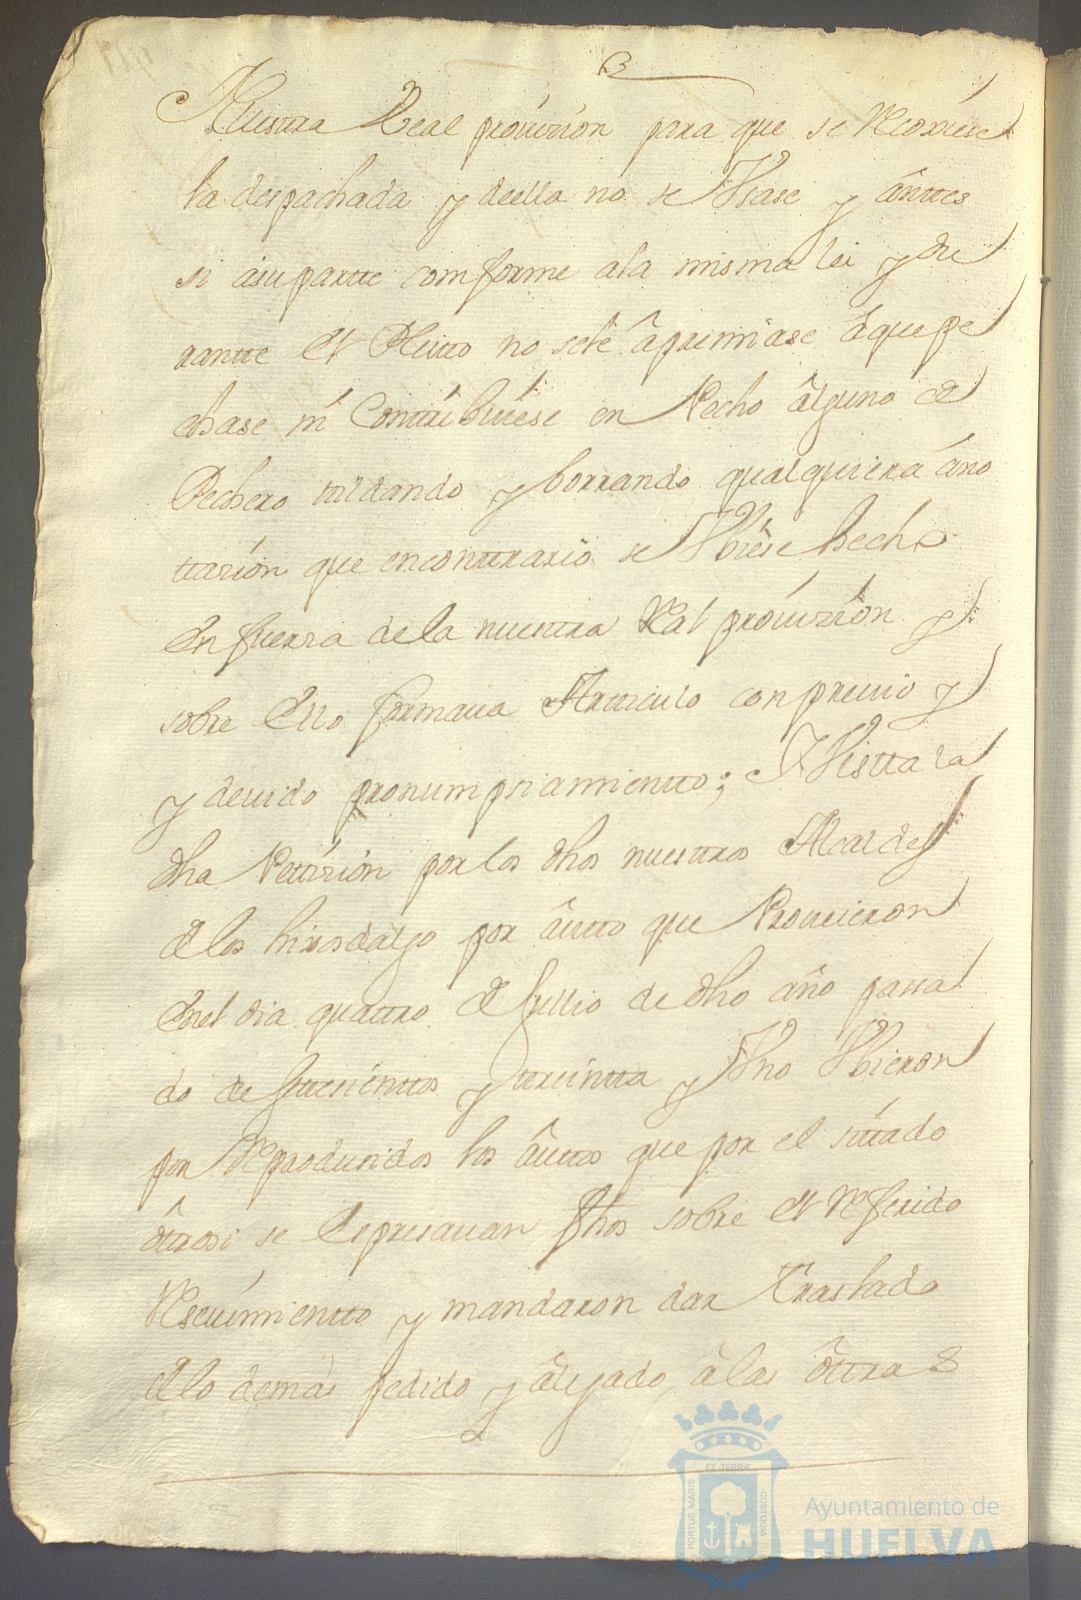 Nuestra Real proivizion para que se Recoxiese
la despachada y deella no se Vsase y anttes
si asu partte comforme ala misma lei y du
rantte el Pleitto no sele apremiase aque pe
chase ni Conttribuiese en Pecho alguno de
Pechero tildando y borrando qualquiera ano
ttazion que encontrario se Vbiese hecho
En fuerza de la nuestra Real proivizion y
sobre Ello formaua Artticulo con preuio y
y deuido pronumpsiamientto; I Vistta la
dha Pettizion por los dhos nuestros Alcaldes
de los hixosdalgo por autto que Proueieron
Enel dia quattro de Jullio de dho año pasa
do de settesienttos y treintta y Vno Vbieron
por Reproduzidos los auttos que por el sittado
ottrosi se Espresauan fhos sobre el Referido
Reseuimientto y mandaron dar Traslado
de lo demas pedido y alegado, a las ottras
PORTUS MARIS
ET TERRÆ
CUSTODIA
Ayuntamiento de
HUELVA